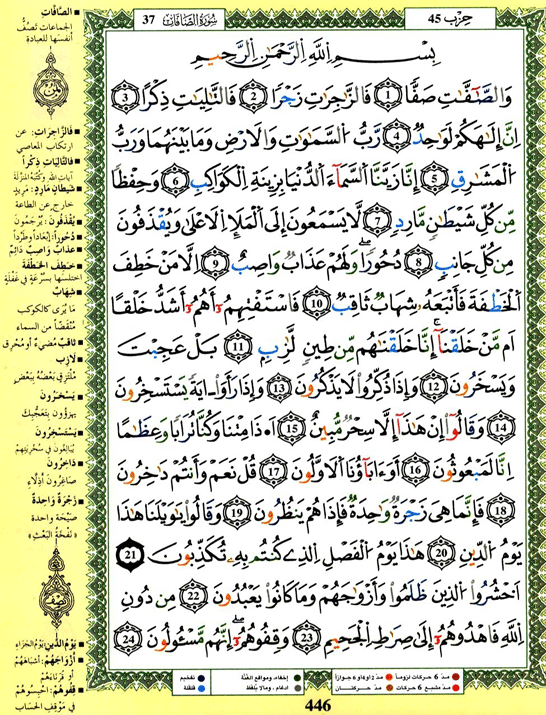 حزب 45
سُورَةُ الصَّافَّاتِ
37
بِسْمِ اللَّهِ الرَّحْمَٰنِ الرَّحِيمِ
وَالصَّٰٓفَّٰتِ صَفّٗا 1 فَالزَّٰجِرَٰتِ زَجْرٗا 2 فَالتَّٰلِيَٰتِ ذِكْرًا 3
اِنَّ إِلَٰهَكُمْ لَوَٰحِدٞ 4 رَّبُّ السَّمَٰوَٰتِ وَالَارْضِ وَمَا بَيْنَهُمَا وَرَبُّ
الْمَشَٰرِقِ 5 إِنَّا زَيَّنَّا السَّمَآءَ الدُّنْيَا بِزِينَةِ الْكَوَاكِبِ 6 وَحِفْظٗا
مِّن كُلِّ شَيْطَٰنٖ مَّارِدٖ 7 لَّا يَسْمَعُونَ إِلَى الْمَلَإِ الَاعْلَىٰ وَيُقْذَفُونَ
مِن كُلِّ جَانِبٖ 8 دُحُورٗا وَلَهُمْ عَذَابٞ وَاصِبٌ 9 اِلَّا مَنْ خَطِفَ
الْخَطْفَةَ فَأَتْبَعَهُۥ شِهَابٞ ثَاقِبٞ 10 فَاسْتَفْتِهِمُۥٓ أَهُمُۥٓ أَشَدُّ خَلْقًا
اَم مَّنْ خَلَقْنَآ إِنَّا خَلَقْنَٰهُم مِّن طِينٖ لَّازِبٖ 11 بَلْ عَجِبْتَ
وَيَسْخَرُونَ 12 وَإِذَا ذُكِّرُوا لَا يَذْكُرُونَ 13 وَإِذَا رَأَوَا ايَةٗ يَسْتَسْخِرُونَ
14 وَقَالُوٓا إِنْ هَٰذَآ إِلَّا سِحْرٞ مُّبِينٌ 15 اَ.ذَا مِتْنَا وَكُنَّا تُرَابٗا وَعِظَٰمًا
اِنَّا لَمَبْعُوثُونَ 16 أَوَءَابَآؤُنَا الَاوَّلُونَ 17 قُلْ نَعَمْ وَأَنتُمْ دَٰخِرُونَ
18 فَإِنَّمَا هِيَ زَجْرَةٞ وَٰحِدَةٞ فَإِذَا هُمْ يَنظُرُونَ 19 وَقَالُوا يَٰوَيْلَنَا هَٰذَا
يَوْمُ الدِّينِ 20 هَٰذَا يَوْمُ الْفَصْلِ الذِي كُنتُم بِهِۦ تُكَذِّبُونَ 21
اَحْشُرُوا الذِينَ ظَلَمُوا وَأَزْوَٰجَهُمْ وَمَا كَانُوا يَعْبُدُونَ 22 مِن دُونِ
اِللَّهِ فَاهْدُوهُمُۥٓ إِلَىٰ صِرَٰطِ الْجَحِيمِ 23 وَقِفُوهُمُۥٓ إِنَّهُم مَّسْـُٔولُونَ 24
■ الصَّافَّاتِ
الجماعات تَصُفُّ
أنفسَها للعبادة
■ فَالزَّاجِرَاتِ: عن
ارتكاب المعاصي
■ فَالتَّالِيَاتِ ذِكْراً
آياتِ الله وكُتُبَه المنزّلة
■ شيطانٍ ماردٍ: مَرِيدٍ
خارجٍ عن الطاعة
■ يُقذَفُونَ: يُرْجَمُونَ
■ دُحُوراً: إبعاداً وطَرْداً
■ عَذَابٌ وَاصِبٌ: دَائِمٌ
■ خَطِفَ الْخَطْفَةَ
اختلسها بسُرْعَةٍ في غَفْلَةٍ
■ شِهَابٌ
مَا يُرَى كالكوكب
مُنْقَضّاً من السماء
■ ثَاقِبٌ: مُضيءٌ أو مُحْرِقٌ
■ لَازِبٍ
مُلْتَزِقٍ بعضُهُ بِبَعْضٍ
■ يَسْخَرُونَ
يهزؤون بتعجُّبِكَ
■ يَسْتَسْخِرُونَ
يُبَالِغُونَ في سُخْرِيَتِهِمْ
■ دَاخِرُونَ
صَاغِرُونَ أَذِلَّاءُ
■ زَجْرَةٌ وَاحِدَةٌ
صَيْحَةٌ وَاحِدَةٌ
«نَفْخَةُ الْبَعْثِ»
نصف
■ يَوْمُ الدِّينِ: يَوْمُ الجَزَاءِ
■ أَزْوَاجَهُمْ: أَشْبَاهَهُمْ
أو قُرَنَاءَهُمْ
■ قِفُوهُمْ: احْبِسُوهُمْ
في مَوْقِفِ الحِسَابِ
مدّ 6 حركات لزوماً
مدّ 2 أو 4 أو 6 جوازاً
إخفاء، ومواقع الغُنَّة
تفخيم
مدّ مشبع 6 حركات
مدّ حركتـــان
ادغام، ومالا يُلفَظ
قلقلة
446